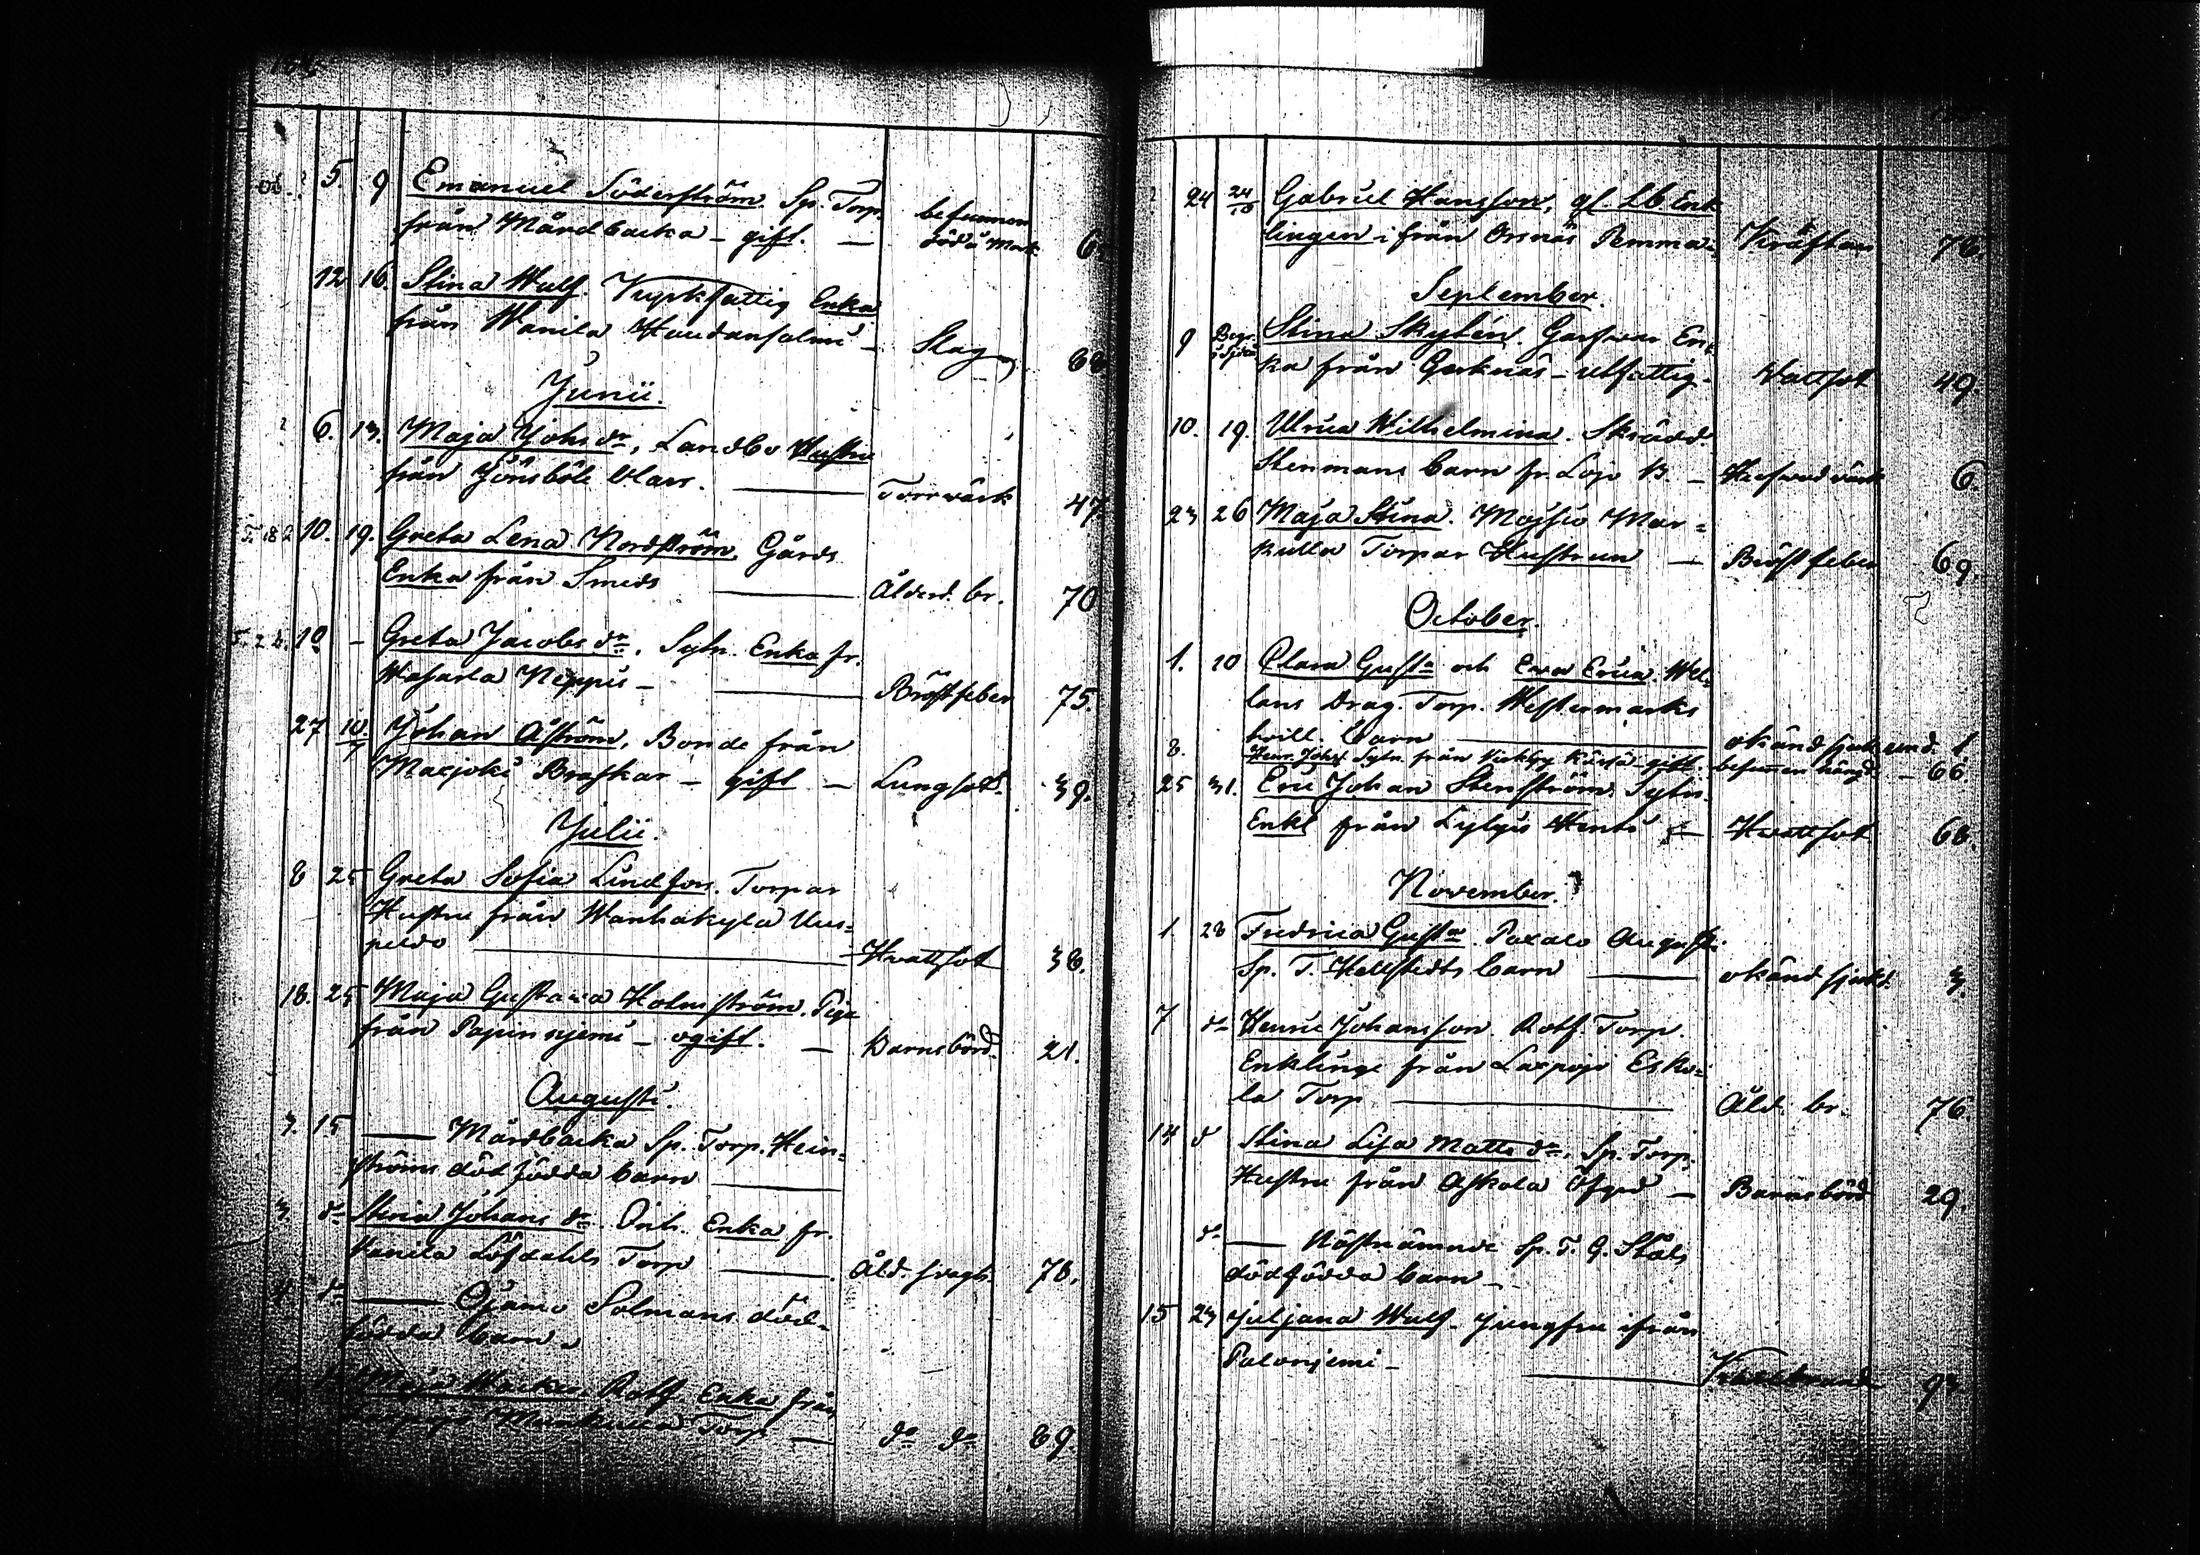 5. 9 Emanuel Söderström. Sp. Torp. befunnen
från Mårdbacka – gift. — död i Mark.
12 16. Stina Wulf. Enka
från Wanila — Slag 68
Junii.
6. 13. Maja Johs dr, Landbo Hustru
från Jönsböle Clars. — Torrwärk 47
10. 19. Greta Lena Nordström. Gårds
Enka från Smeds — Ålderd. br. 70
10 – Greta Jacobs dr. Sytn. Enka fr.
Wasarla Neppis – — Bröstfeber 75.
27 10/7 Johan Åström, Bonde från
Marjoki Braskar – gift – Lungsot. 39.
Julii.
8 25 Greta Sofia Lindfors. Torpar
Hustru från Wanhakylä Uus=
peldo — Hvattsot 38.
18. 25 Maja Gustava Holmström. Piga
från – ogift. — Barnsbörd. 21.
Augusti.
3. 15 — Mårdbacka Sp. Torp. Hein=
ströms dödfödda barn —
3. do Stina Johans dr. Inh. Enka fr.
Wanila Löfdahls Torp — Åld. svagh. 78.
do — Ojamo Solmans död=
födda barn.
Maja Rotf. Enka från
Torp — do do 89.
24 24/10 Gabriel Hansson, gl. Lb Enk
lingen ifrån Orsnäs Pemma. Kräftan 76.
September.
9 Stina Skytén. En=
ka från Gerknäs – utfattig. Wattsot 49.
10. 19. Ulrica Wilhelmina. Skrädd.
Stenmans barn fr. Lojo B. – Hufwudwärk 6.
23 26 Maja Stina. Moisio Mar=
kulla Torpar Hustrun — Bröstfeber 69.
October.
1. 10 Clara Gusta och Eva Erica. Wel=
lans Drag. Torp. Westermarks
twill. barn — okänd sjuk. und. 1
8. Henr. Johs Sytn. från gift. befunnen hängd – 66.
25 31. Eric Johan Stenström. Sytn.
Enkl från Lylyis Hentu — Hwattsot 68.
November.
1 28 Fredrica Gusta. Paxalo August
Sp. T. Hellstedts barn — okänd sjukd. 3.
7 do Henric Johansson Rotf. Torp.
Enklinge från Laxpojo Esko=
la Torp — Åld. br. 76.
14 d Stina Lisa Matts dr. Sp. Torp.
Hustru från Askola Öfvre — Barnsbörd 29.
do — Nästnämnde Sp. T. G. Ståls
dödfödda barn –
15 23 Juljana Wulf. Jungfru ifrån
Paloniemi – — Kallbrand 93